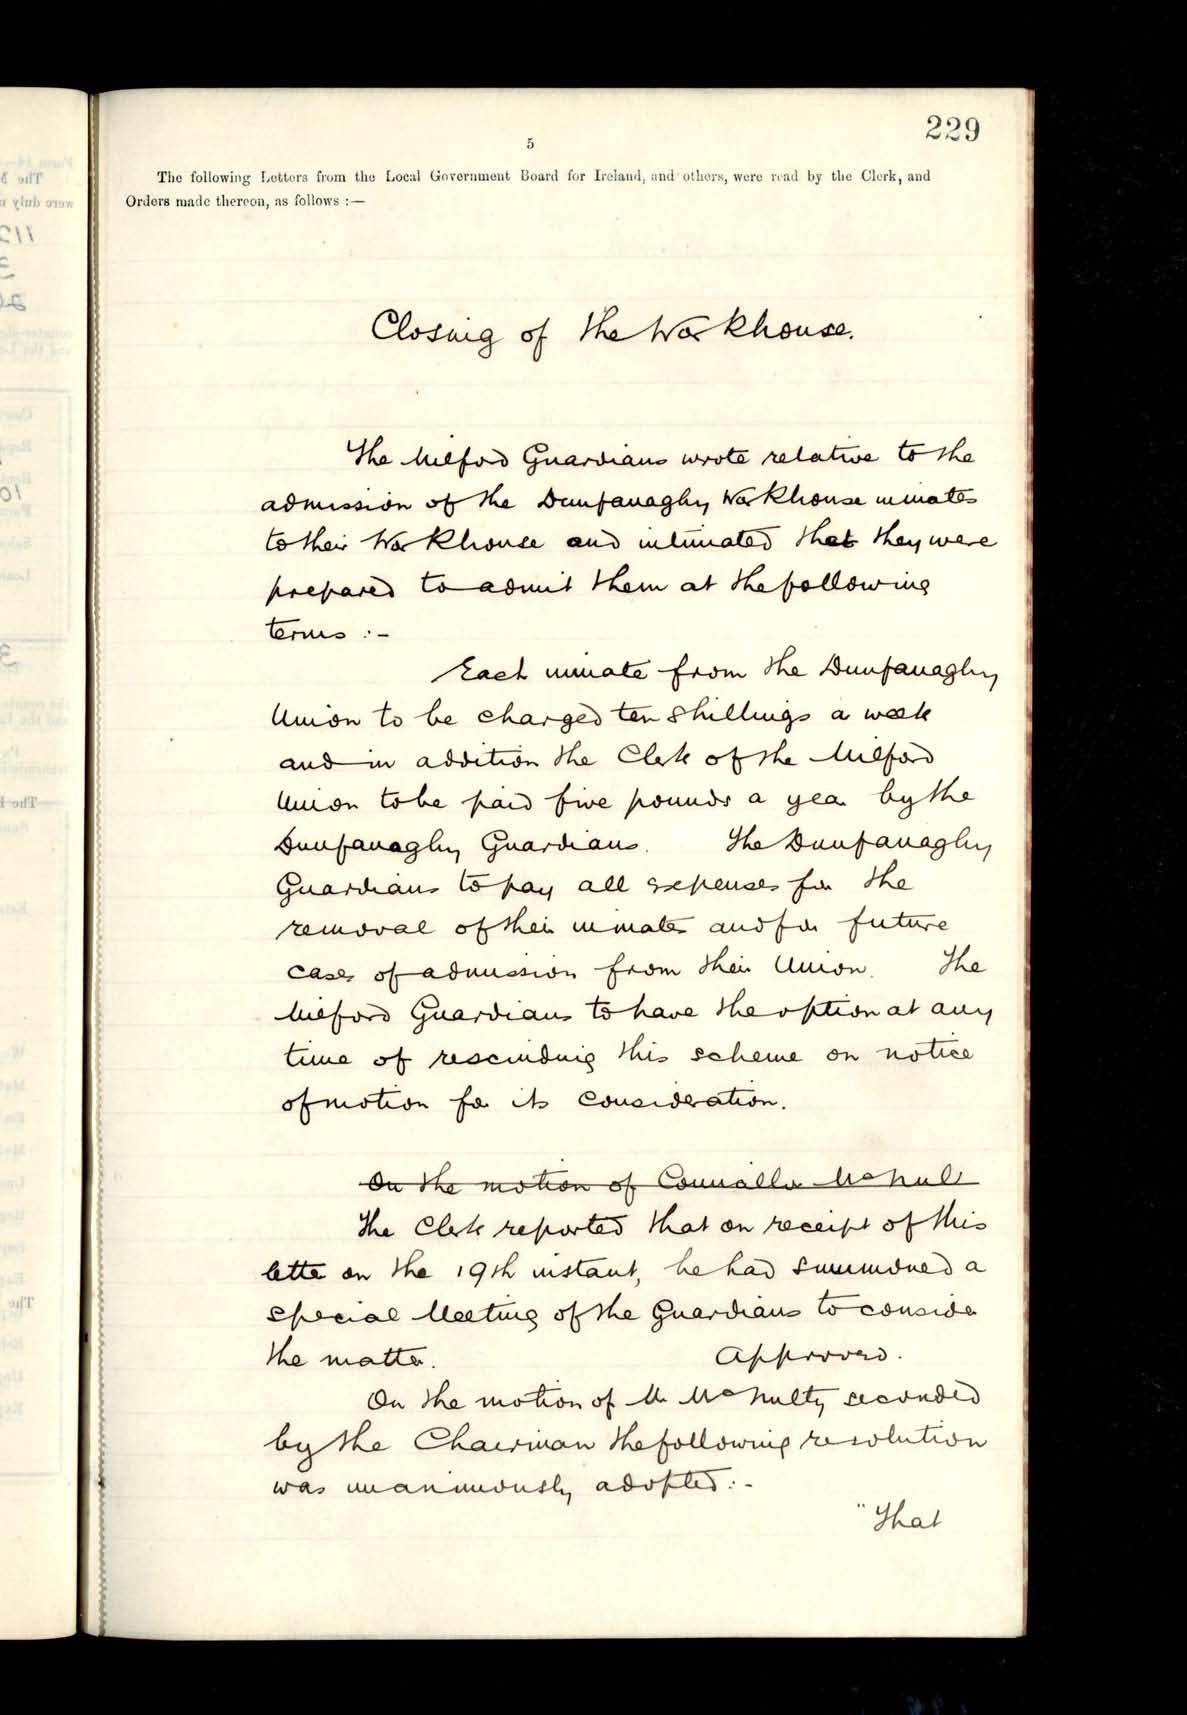 229
5
The following Letters from the Local Government Board for Ireland, and others, were read by the Clerk, and
Orders made thereon, as follows :—
Closing of the Workhouse.
The Milford Guardians wrote relative to the
admission of the Dunfanaghy Workhouse inmates
to their Workhouse and intimated that they were
prepared to admit them at the following
terms :-
Each inmate from the Dunfanaghy
Union to be charged ten shillings a week
and in addition the Clerk of the Milford
Union to be paid five pounds a year by the
Dunfanaghy Guardians. The Dunfanaghy
Guardians to pay all expenses for the
removal of their inmates and for future
cases of admission from their Union. The
Milford Guardians to have the option at any
time of rescinding this scheme on notice
of motion for its consideration.
On the motion of Councillor McNult
The Clerk reported that on receipt of this
letter on the 19th instant, he had summoned a
special Meeting of the Guardians to consider
the matter. Approved.
On the motion of Mr McNulty seconded
by the Chairman the following resolution
was unanimously adopted :-
"That